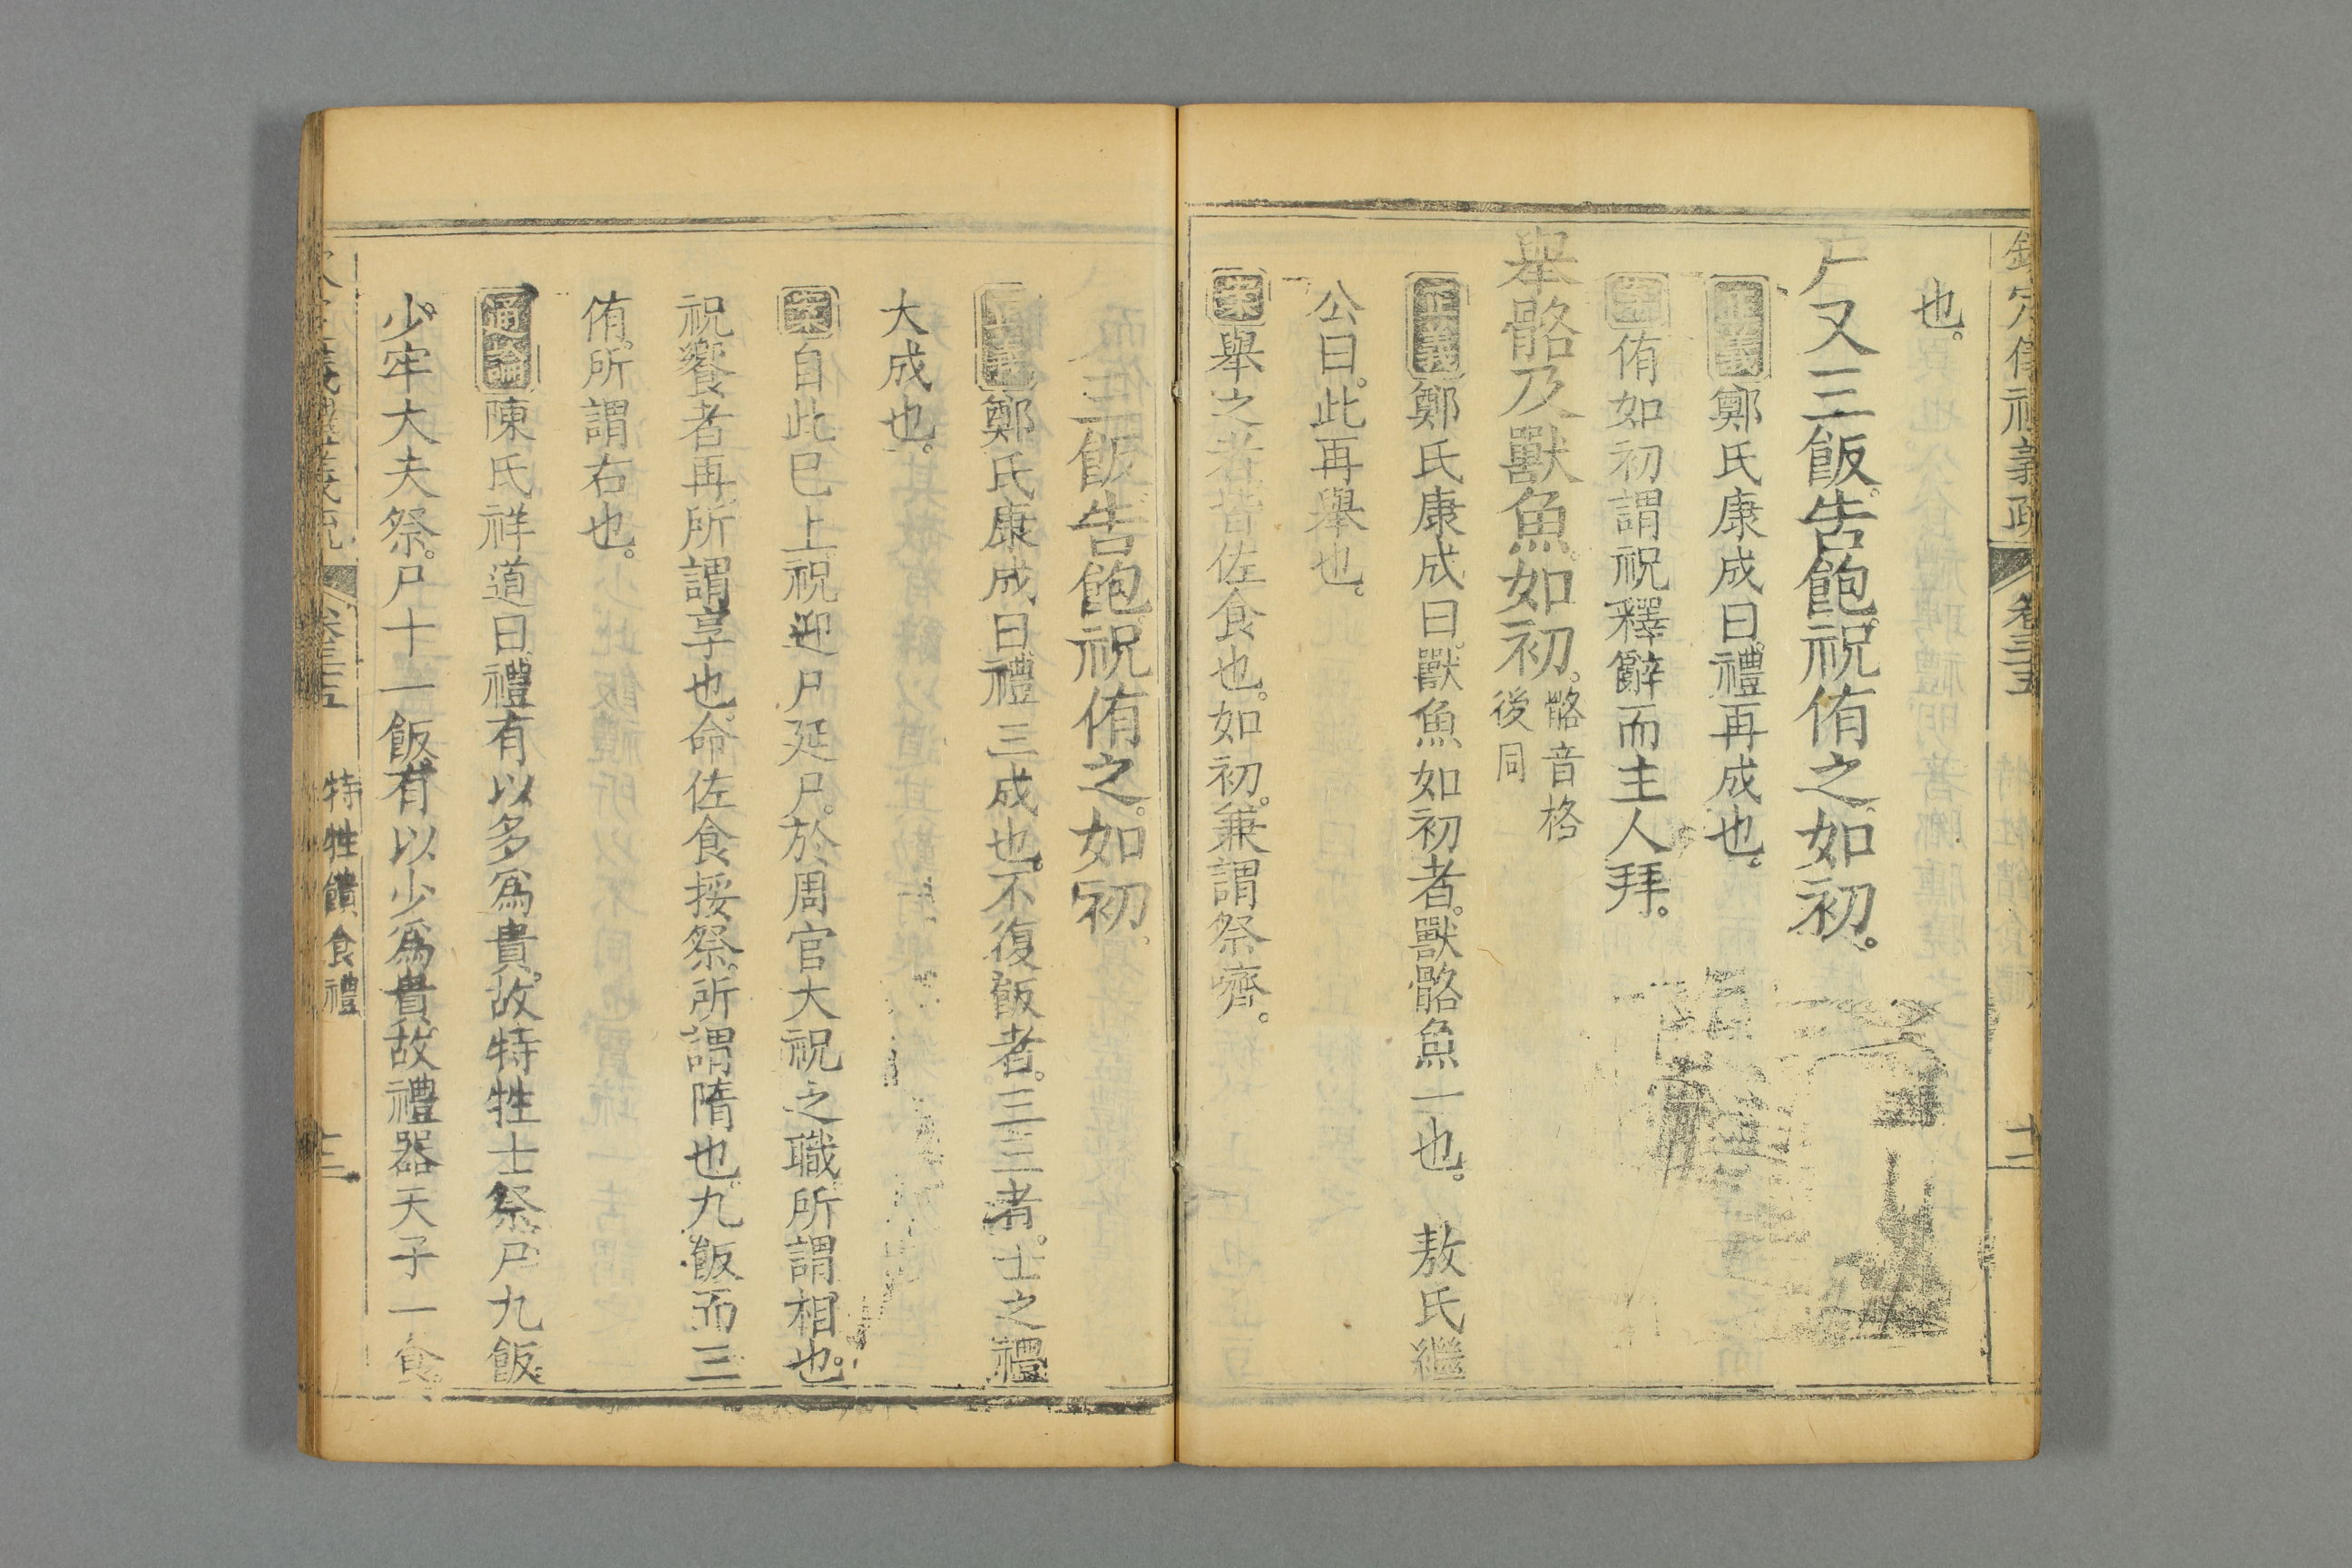 欽定儀禮義疏 卷三十五 十二
也。
尸又三飯。告飽。祝侑之如初。
正義鄭氏康成曰。禮再成也。
案侑如初。謂祝釋辭而主人拜。
舉骼及獸魚。如初。骼音格後同
正義鄭氏康成曰。獸魚如初者。獸骼魚一也。 敖氏繼
公曰。此再舉也。
案舉之者皆佐食也。如初。兼謂祭嚌。
又三飯告飽。祝侑之。如初。
正義鄭氏康成曰。禮三成也。不復飯者。三三者。士之禮
大成也。
案自此已上。祝迎尸延尸。於周官大祝之職所謂相也。
祝饗者再。所謂享也。命佐食挼祭。所謂隋也。九飯而三
侑。所謂右也。
通論陳氏祥道曰。禮有以多爲貴。故特牲士祭。尸九飯。
少牢大夫祭。尸十一飯。有以少爲貴。故禮器天子一食。
義疏 卷三十五 特牲饋食禮 十三